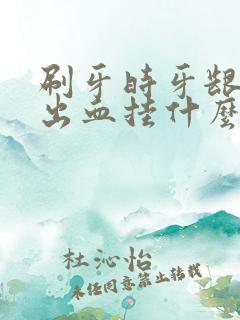 刷牙时牙龈
出血挂什么
杜沁怡
未经同意禁止转载